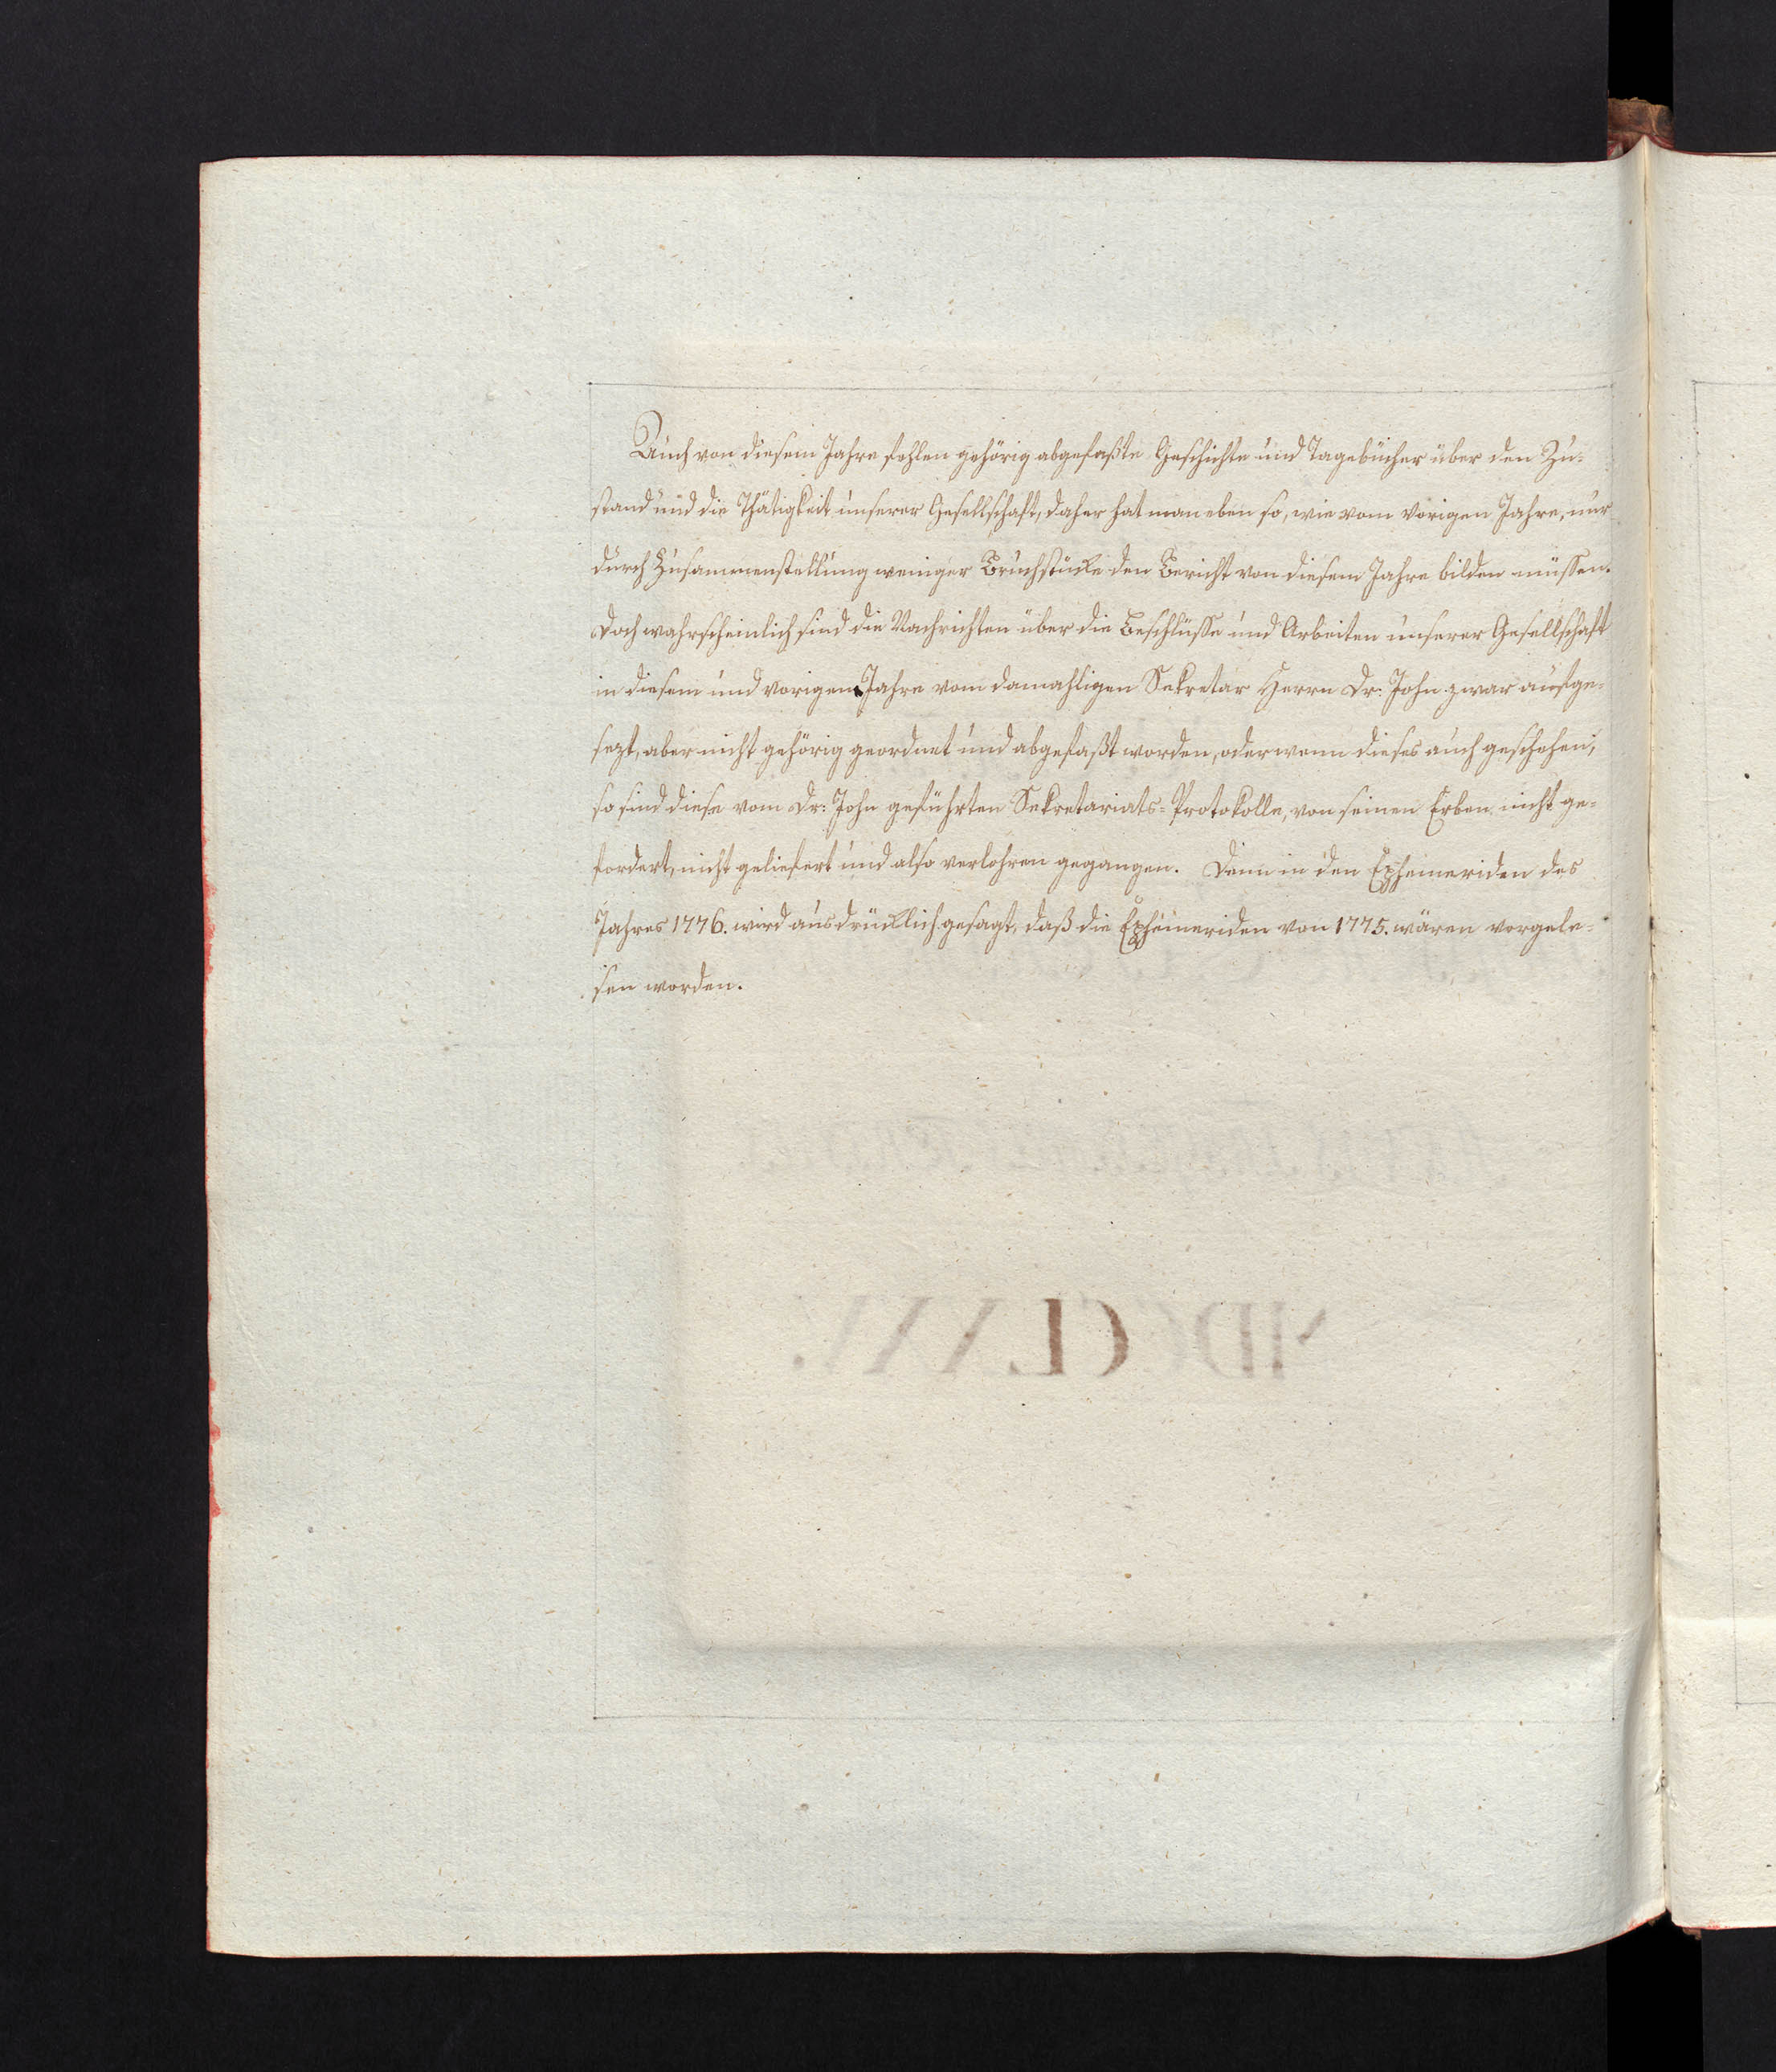 Auch von diesem Jahre fehlen gehörig abgefaßte Geschichte und Tagebücher über den Zu-
stand und die Thätigkeit unserer Gesellschaft, daher hat man eben so, wie vom vorigen Jahre, nur
durch Zusammenstellung weniger Bruchstücke den Bericht von diesem Jahre bilden müssen.
Doch wahrscheinlich sind die Nachrichten über die Beschlüsse und Arbeiten unserer Gesellschaft
in diesem und vorigen Jahre vom damahligen Sekretär Herrn Dr: John zwar aufge-
sezt, aber nicht gehörig geordnet und abgefaßt worden, oder wenn dieses auch geschehen,
so sind diese vom Dr: John geführten Sekretariats-Protokolle, von seinen Erben nicht ge-
fordert, nicht geliefert und also verlohren gegangen. Denn in den Ephemeriden des
Jahres 1776. wird ausdrücklich gesagt, daß die Ephemeriden von 1775. wären vorgele-
sen worden.
MDCCLXXV.